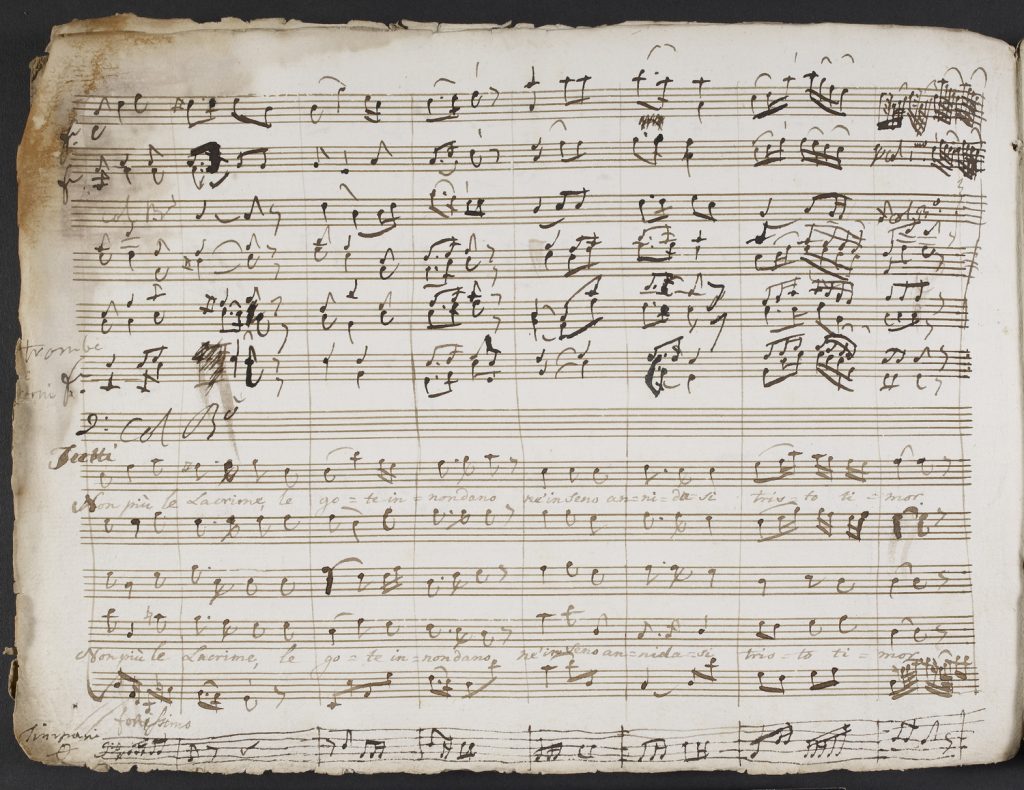 Col Bo
Col Bo
trombe
Corni
col Bo
Tutti
Non più le Lacrime, le go = te in = nondano ne in seno an = ni = da = si tris = to ti = mor
Non più le Lacrime, le go = te in = nondano ne in seno an = nida = si tris = to ti = mor
fortissimo
timpani